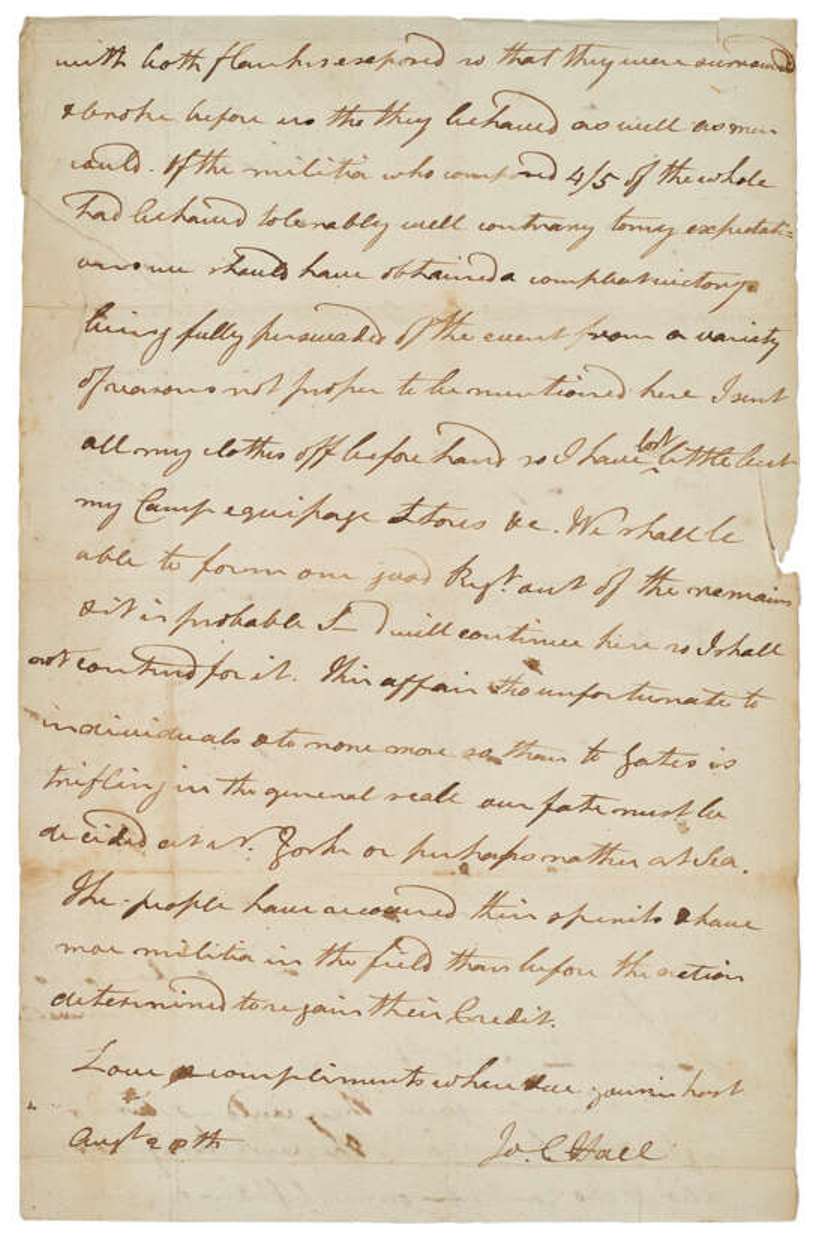 with both flanks exposed so that they were surrounded
& broke before us tho they behaved as well as men
could. If the militia who composed 4/5 of the whole
had behaved tolerably well contrary to my expectati=
ons we should have obtained a compleat victory
being fully perswaded of the event from a variety
of reasons not proper to be mentioned here I sent
all my clothes off before hand so I have lost little but
my Camp equipage Stores &c. We shall be
able to form one good Regt. out of the remains
& it is probable I d will continue here so I shall
not contend for it. This affair tho unfortunate to
individuals & to none more so than to Gates is
trifling in the general scale our fate must be
decided at N. York or perhaps rather at Sea.
The people have recovered their spirits & have
more militia in the field than before the action
determined to regain their Credit.
Love & compliments where due yours in hast
Augt 20th
Jo. C Hall